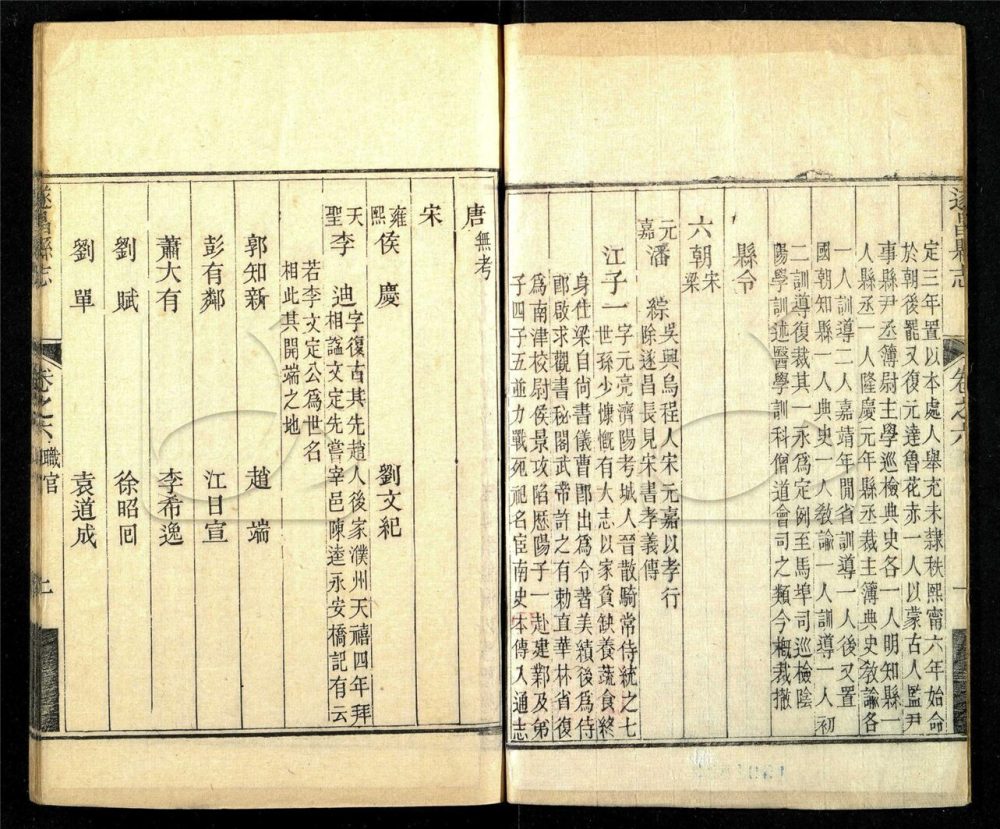 遂昌縣志
卷之六
一
定三年置以本處人舉充未隸秩熙甯六年始命
於朝後罷又復元達魯花赤一人以蒙古人監尹
事縣尹丞簿尉主學巡檢典史各一人明知縣一
人縣丞一人隆慶元年縣丞裁主簿典史教諭各
一人訓導二人嘉靖年閒省訓導一人後又置
國朝知縣一人典史一人教諭一人訓導一人初
二訓導復裁其一永爲定例至馬埠司巡檢陰
陽學訓述醫學訓科僧道會司之類今概裁撤
縣令
六朝宋梁
元嘉潘綜吳興烏程人宋元嘉以孝行
除遂昌長見宋書孝義傳
江子一字元亮濟陽考城人晉散騎常侍統之七
世孫少慷慨有大志以家貧缺養蔬食終
身仕梁自尚書儀曹郎出爲令著美績後爲侍
郎啟求觀書秘閣武帝許之有勅直華林省復
爲南津校尉侯景攻陷歷陽子一赴建鄴及弟
子四子五並力戰死祀名宦南史本傳入通志
唐無考
宋
雍熙侯慶
劉文紀
天聖李迪字復古其先趙人後家濮州天禧四年拜
相謚文定先嘗宰邑陳逵永安橋記有云
若李文定公爲世名
相此其開端之地
郭知新
趙端
彭有鄰
江目宣
蕭大有
李希逸
劉賦
徐昭回
劉單
袁道成
遂昌縣志
卷之六
職官